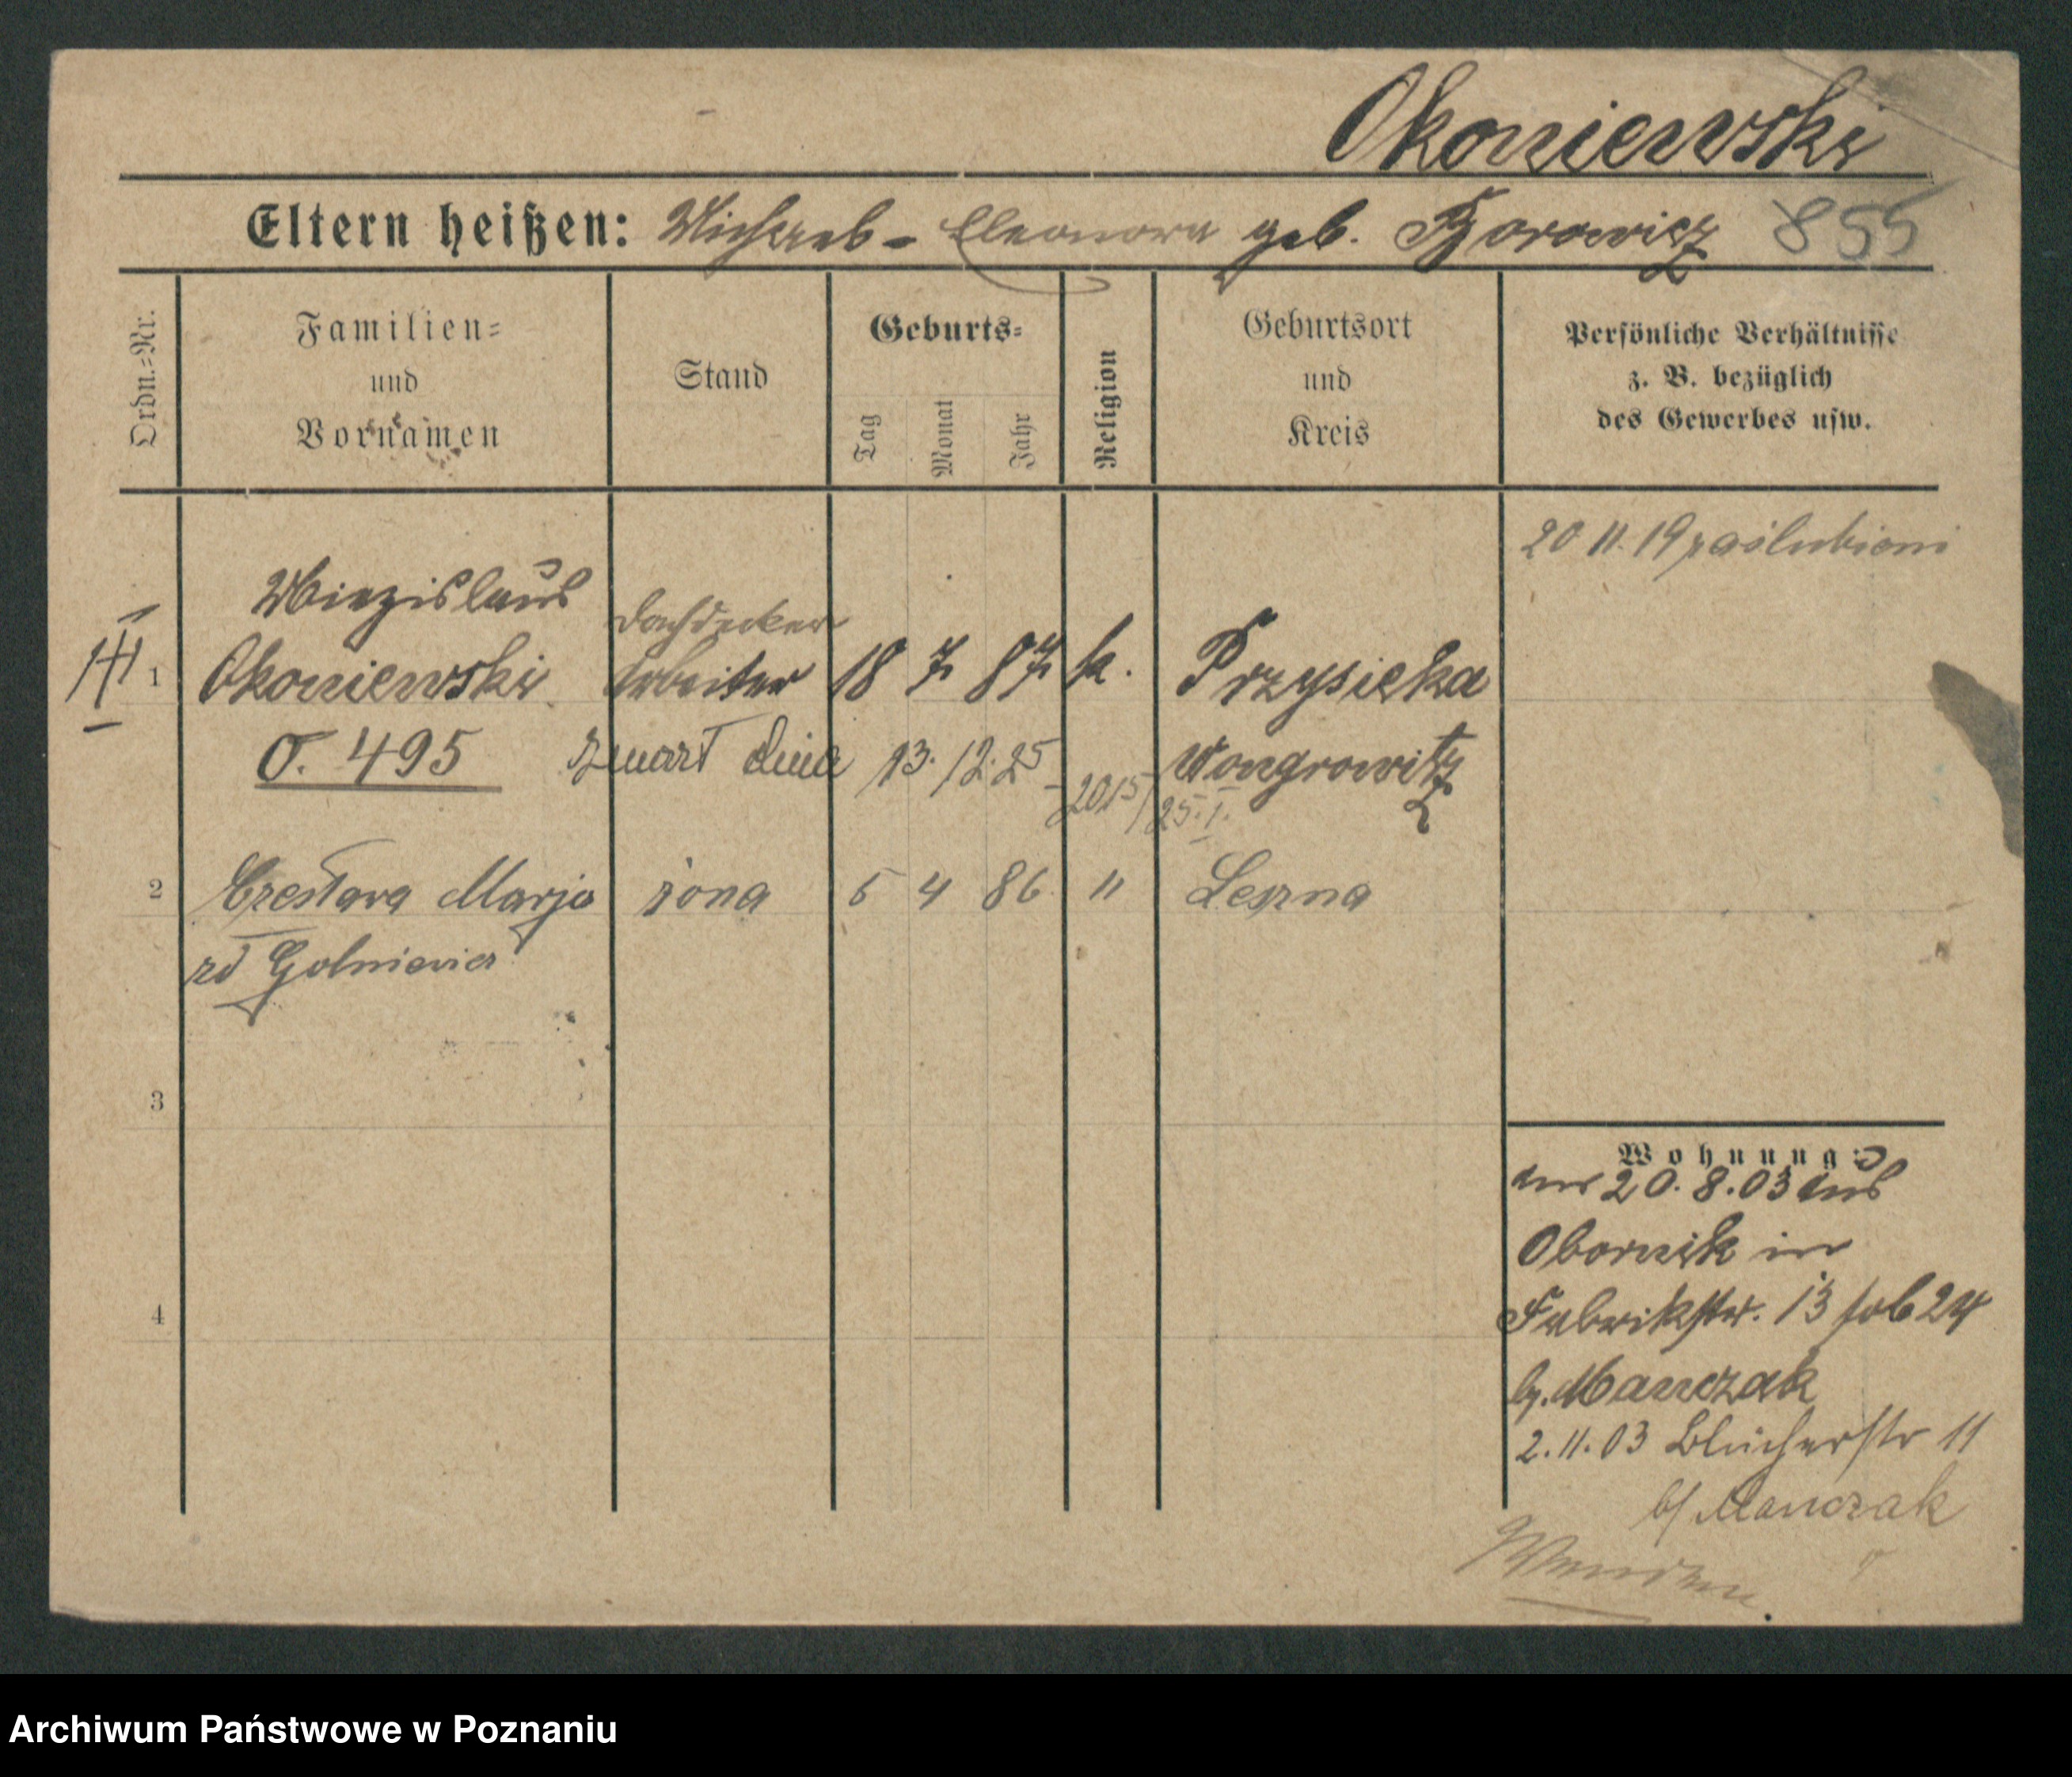 Okoniewski
Eltern heißen: Michael - Eleonora geb. Borowicz 855
Ordn.-Nr.
Familien-
und
Vornamen
Stand
Geburts-
Tag
Monat
Jahr
Religion
Geburtsort
und
Kreis
Persönliche Verhältnisse
z. B. bezüglich
des Gewerbes usw.
20 11. 19 zaślubieni
1
Miezislaus
Okoniewski
O. 495
Dachdecker
Arbeiter
18 7 87 k.
Przysieka
Wongrowitz
zmarł dnia 13. 12. 25 - 2015/25. I.
2
Czesława Marja żona 5 4 86 " Leszna
3
4
Wohnung:
am 20. 8. 03 aus
Obornik in
Fabrikstr. 13
b. Manczak
2. 11. 03 Blücherstr 11
b/ Manczak
Wenden
Archiwum Państwowe w Poznaniu